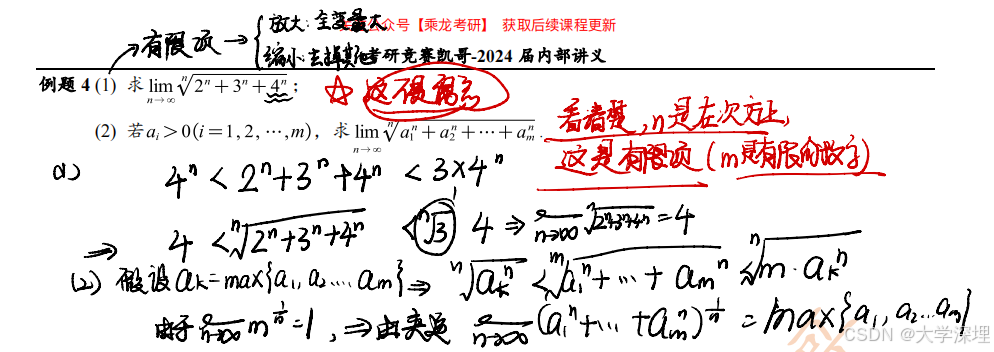 公众号【乘龙考研】 获取后续课程更新
有限项 → { 放大: 全变最大
缩小: 去掉其他
考研竞赛凯哥-2024 届内部讲义
例题 4 (1) 求 lim_{n→∞} ⁿ√(2ⁿ + 3ⁿ + 4ⁿ) ;
☆ 这不是离忘
(2) 若 aᵢ > 0 (i = 1, 2, ⋯, m), 求 lim_{n→∞} ⁿ√(a₁ⁿ + a₂ⁿ + ⋯ + aₘⁿ) .
看清楚, n是在次方上,
这是有限项 (m是有限的数字)
(1) 4ⁿ < 2ⁿ+3ⁿ+4ⁿ < 3×4ⁿ
⇒ 4 < ⁿ√(2ⁿ+3ⁿ+4ⁿ) < ⁿ√3 4 ⇒ lim_{n→∞} ⁿ√(2ⁿ+3ⁿ+4ⁿ) = 4
(2) 假设 aₖ = max{a₁, a₂ ⋯ aₘ} ⇒ ⁿ√(aₖⁿ) < ᵐ√(a₁ⁿ + ⋯ + aₘⁿ) < ⁿ√(m·aₖⁿ)
由于 lim_{n→∞} m^{1/n} = 1, ⇒ 由夹逼 lim_{n→∞} (a₁ⁿ + ⋯ + aₘⁿ)^{1/n} = max{a₁, a₂ ⋯ aₘ}
CSDN @大学深埋